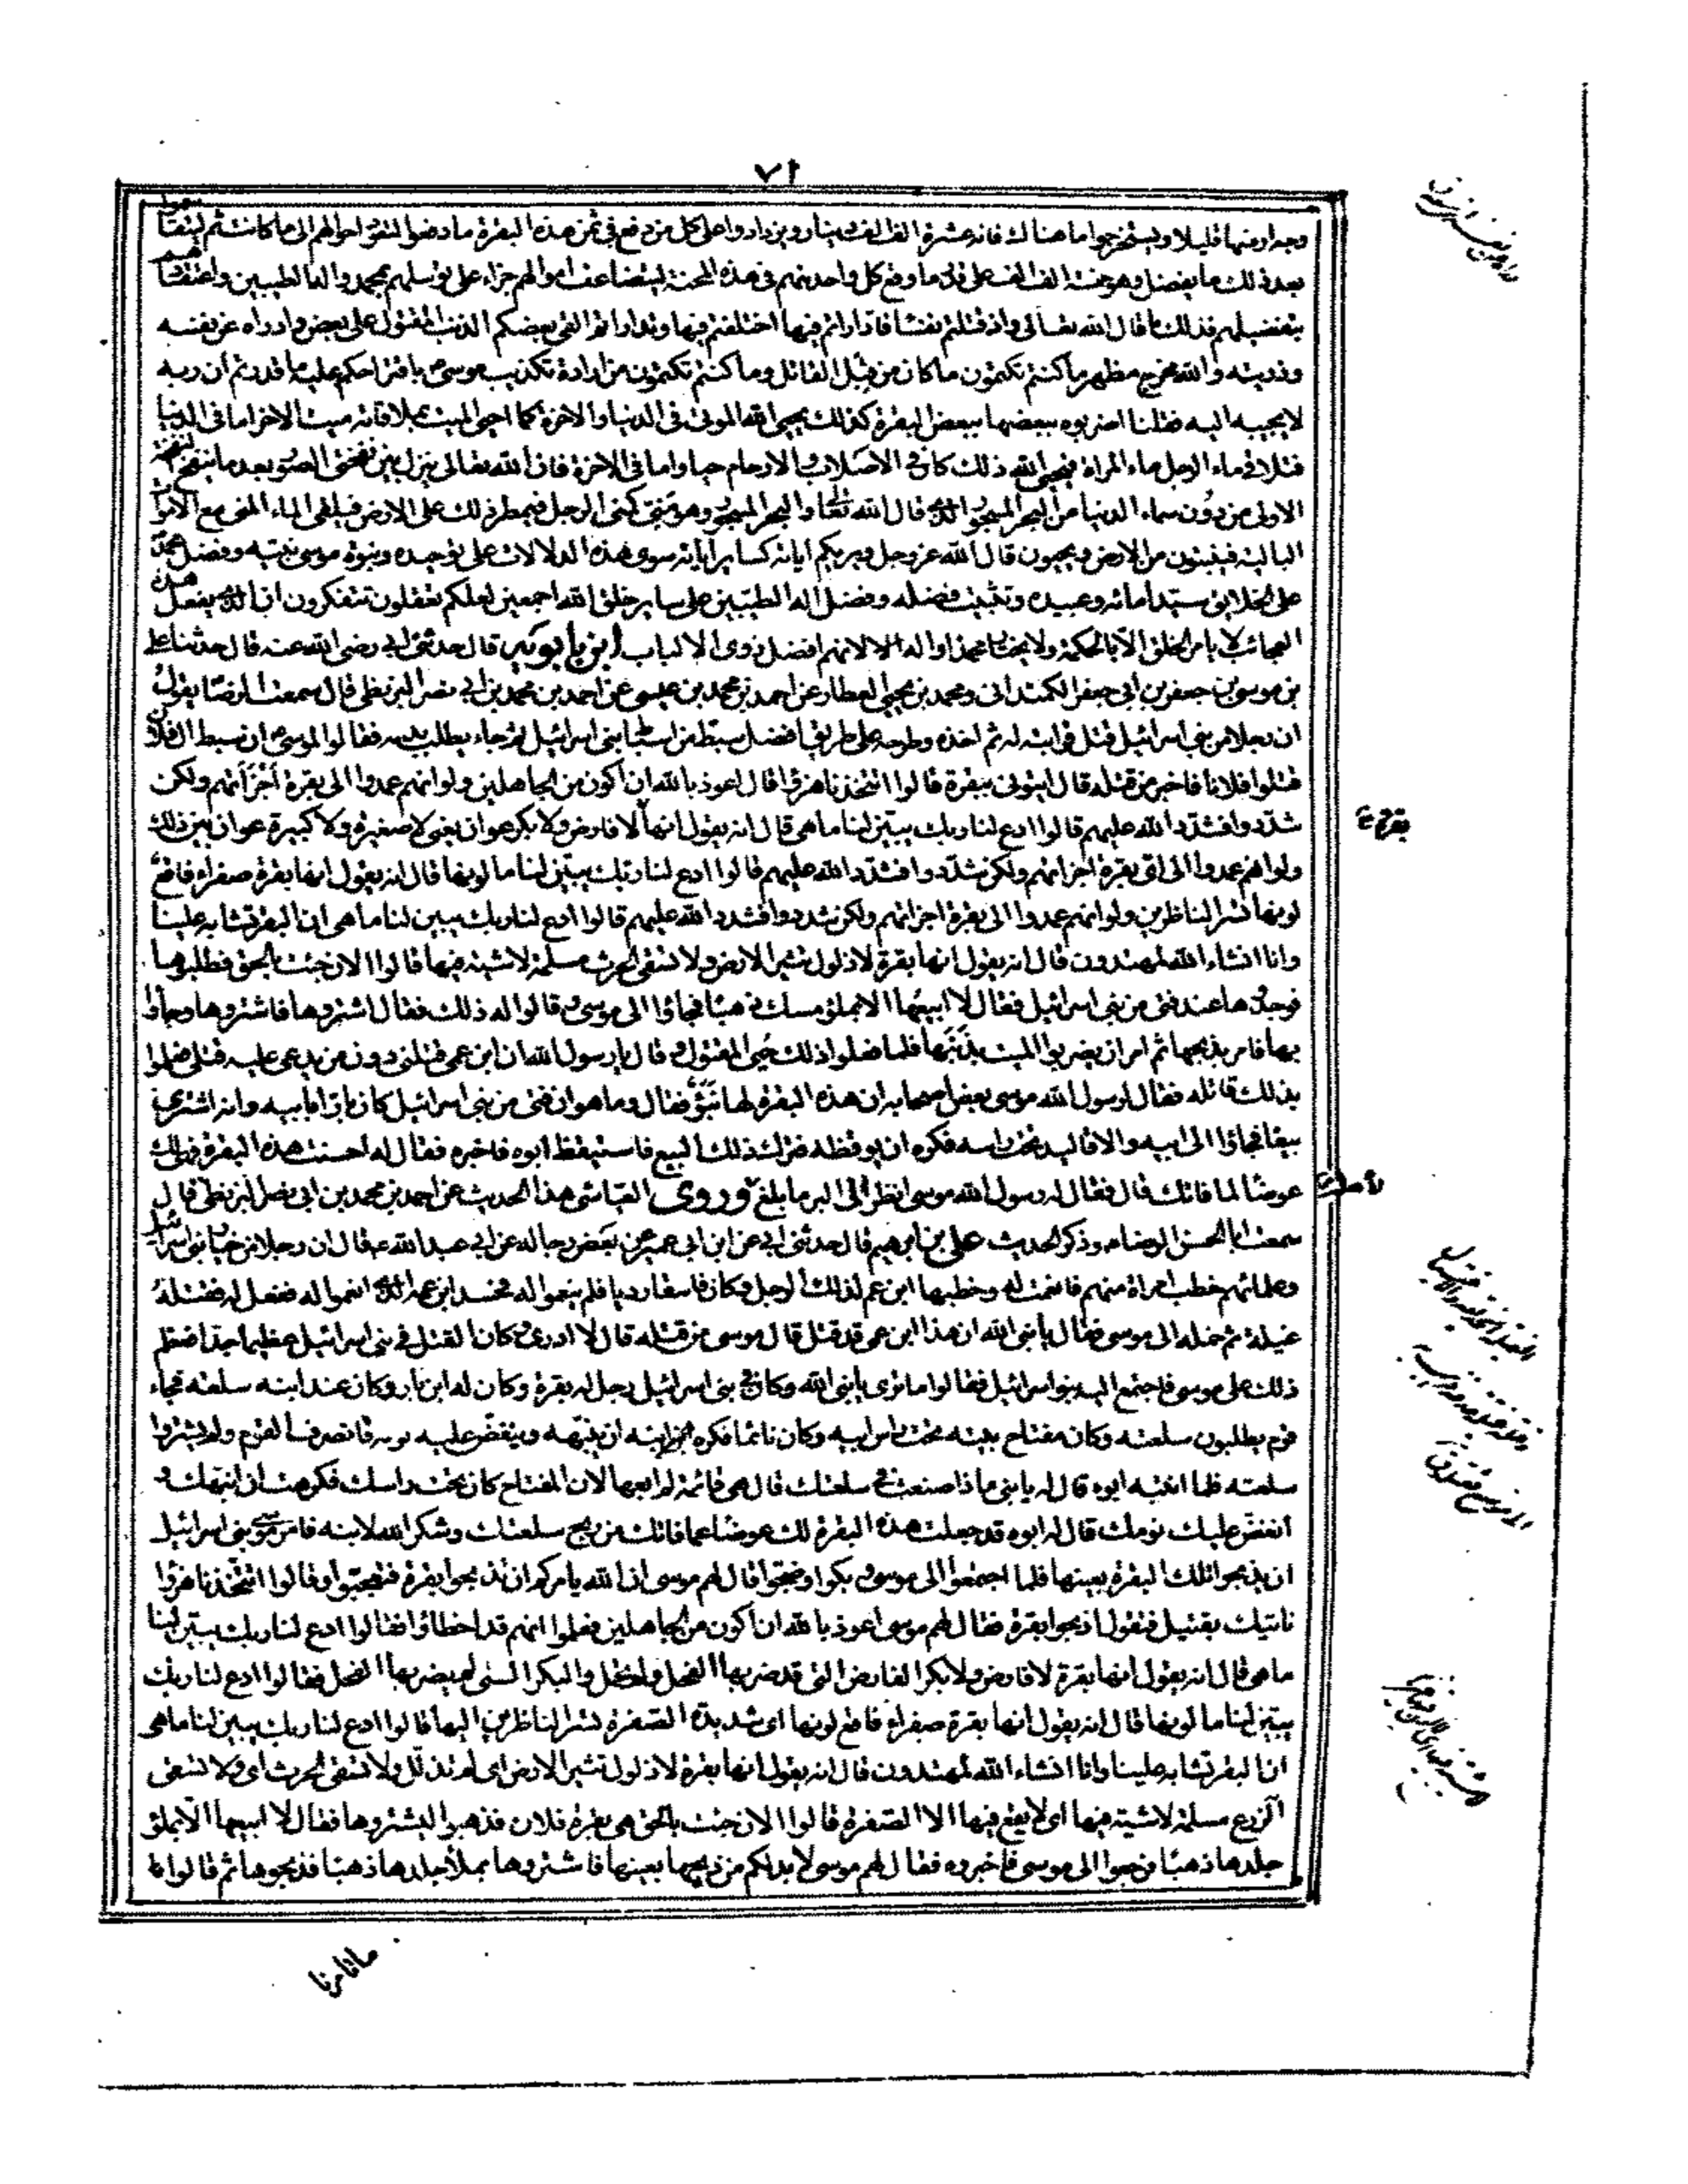 ٧١
وجدارمنها قليلا ويستخرجوا ما هنالك فانه عشرة الف الف دينار ويزدادوا على كل من دفع في ثمن هذه البقرة ما دفعوا لتعود احوالهم الى ما كانت ثم ليتقاسموا
بعد ذلك ما يفضل وهو خمسة الف الف على قدر ما دفع كل واحد منهم في هذه المحنة ليتضاعف اموالهم جزاء على توسلهم بمحمد واله الطيبين واعتقادهم
بتفضيلهم فذلك ما قال الله تعالى واذ قتلتم نفسا فاداراتم فيها اختلفتم فيها وتداراتم القى بعضكم الذنب المقتول على بعض وادراه عن نفسه
وذريته والله مخرج مظهر ما كنتم تكتمون ما كان من قبل القاتل وما كنتم تكتمون من ارادة تكذيب موسى ع باقتراحكم عليه ما قدرتم ان ربه
لا يجيبه اليه فقلنا اضربوه ببعضها ببعض البقرة كذلك يحيى الله الموتى فى الدنيا والاخرة كما احيى الميت بملاقاته ميتا لاخر اما فى الدنيا
فتلاقى ماء الرجل ماء المراة فيحيى الله ذلك كان فى الاصلاب والارحام حيا واما فى الاخرة فان الله تعالى ينزل بين نفختى الصور بعد ما ينفخ النفخة
الاولى من دون سماء الدنيا من البحر المسجور الذى قال الله تعالى والبحر المسجور وهو منى كمنى الرجل فيمطر ذلك على الارض فيلقى الماء المنى مع الاموات
البالية فينبتون من الارض ويحيون قال الله عز وجل ويريكم اياته كساير اياته سوى هذه الدلالات على توحيده ونبوة موسى نبيه وفضل محمد
على الخلايق سيد امائه وعبيده وتثبيت فضله وفضل اله الطيبين على ساير خلق الله اجمعين لعلكم تعقلون تتفكرون ان الذى يفعل هذه
العجائب لا يامر الخلق الا بالحكمة ولا يختار محمدا واله الا لانهم افضل ذوى الالباب ابن بابويه قال حدثنى ابى رضى الله عنه قال حدثنا على
بن موسى بن جعفر بن ابى جعفر الكمندانى ومحمد بن يحيى العطار عن احمد بن محمد بن عيسى عن احمد بن محمد بن ابى نصر البزنطى قال سمعت الرضا يقول
ان رجلا من بنى اسرائيل قتل قرابته له ثم اخذه وطرحه على طريق افضل سبط من اسباط بنى اسرائيل ثم جاء يطلب بدمه فقالوا لموسى ع ان سبط ال فلان
قتلوا فلانا فاخبر من قتله قال ايتونى ببقرة قالوا اتتخذنا هزوا قال اعوذ بالله ان اكون من الجاهلين ولو انهم عمدوا الى بقرة اجزاتهم ولكن
شددوا فشدد الله عليهم قالوا ادع لنا ربك يبين لنا ما هى قال انه يقول انها لا فارض ولا بكر عوان يعنى لا صغيرة ولا كبيرة عوان بين ذلك
ولو انهم عمدوا الى اى بقرة اجزاتهم ولكن شددوا فشدد الله عليهم قالوا ادع لنا ربك يبين لنا ما لونها قال انه يقول انها بقرة صفراء فاقع
لونها تسر الناظرين ولو انهم عمدوا الى بقرة اجزاتهم ولكن شددوا فشدد الله عليهم قالوا ادع لنا ربك يبين لنا ما هى ان البقر تشابه علينا
وانا انشاء الله لمهتدون قال انه يقول انها بقرة لا ذلول تثير الارض ولا تسقى الحرث مسلمة لا شية فيها قالوا الان جئت بالحق فطلبوها
فوجدوها عند فتى من بنى اسرائيل فقال لا ابيعها الا بملؤ مسك ذهبا فجاؤا الى موسى ع قالوا له ذلك فقال اشتروها فاشتروها وجاؤا
بها فامر بذبحها ثم امر ان يضربوا الميت بذنبها فلما فعلوا ذلك حيى المقتول و قال يا رسول الله ان ابن عمى قتلنى دون من يدعى عليه قتلى فعلموا
بذلك قاتله فقال لرسول الله موسى بعض اصحابه ان هذه البقرة لها نبؤ فقال وما هو ان فتى من بنى اسرائيل كان بارا بابيه وانه اشترى
بيعا فجاؤا الى ابيه والاقاليد تحت راسه فكره ان يوقظه فترك ذلك البيع فاستيقظ ابوه فاخبره فقال له احسنت هذه البقرة فهى لك
عوضا لما فاتك قال فقال له رسول الله موسى انظر الى البر ما بلغ وروى العياشى هذا الحديث عن احمد بن محمد بن ابى نصر البزنطى قال
سمعت ابا الحسن الرضا ع وذكر الحديث على بن ابرهيم قال حدثنى ابى عن ابن ابى عمير عن بعض رجاله عن ابى عبد الله ع قال ان رجلا من خيار بنى اسرائيل
وعلمائهم خطب امراة منهم فانعمت له وخطبها ابن عم لذلك الرجل وكان فاسقا رديا فلم ينعموا له فحسد ابن عمه الذى انعموا له فقعد له فقتله
غيلة ثم حمله الى موسى فقال يا نبى الله ان هذا ابن عمى قد قتل قال موسى من قتله قال لا ادرى وكان القتل فى بنى اسرائيل عظيما جدا فعظم
ذلك على موسى فاجتمع اليه بنو اسرائيل فقالوا ما ترى يا نبى الله وكان فى بنى اسرائيل رجل له بقرة وكان له ابن بار وكان عند ابنه سلعة فجاء
قوم يطلبون سلعته وكان مفتاح بيته تحت راس ابيه وكان نائما فكره ابنه ان ينبهه وينغص عليه نومه فانصرف القوم ولم يشتروا
سلعته فلما انتبه ابوه قال له يا بنى ما ذا صنعت فى سلعتك قال هى قائمة لم ابعها لان المفتاح كان تحت راسك فكرهت ان انبهك و
انغص عليك نومك قال له ابوه قد جعلت هذه البقرة لك عوضا عما فاتك من ربح سلعتك وشكر الله لابنه فامر موسى بنى اسرائيل
ان يذبحوا تلك البقرة بعينها فلما اجتمعوا الى موسى و بكوا وضجوا قال لهم موسى ان الله يامركم ان تذبحوا بقرة فتعجبوا وقالوا اتتخذنا هزوا
ناتيك بقتيل فتقول اذبحوا بقرة فقال لهم موسى اعوذ بالله ان اكون من الجاهلين فعلموا انهم قد اخطاؤا فقالوا ادع لنا ربك يبين لنا
ما هى قال انه يقول انها بقرة لا فارض ولا بكر الفارض التى قد ضربها الفحل ولم تحمل والبكر التى لم يضربها الفحل فقالوا ادع لنا ربك
يبين لنا ما لونها قال انه يقول انها بقرة صفراء فاقع لونها اى شديدة الصفرة تسر الناظرين اليها قالوا ادع لنا ربك يبين لنا ما هى
ان البقر تشابه علينا وانا انشاء الله لمهتدون قال انه يقول انها بقرة لا ذلول تثير الارض اى لم تذلل ولا تسقى الحرث اى ولا تسقى
الزرع مسلمة لا شية فيها اى لا بقع فيها الا الصفرة قالوا الان جئت بالحق هى بقرة فلان فذهبوا ليشتروها فقال لا ابيعها الا بملؤ
جلدها ذهبا فرجعوا الى موسى فاخبروه فقال لهم موسى لا بد لكم من ذبحها بعينها فاشتروها بملأ جلدها ذهبا فذبحوها ثم قالوا ما
ما تامرنا